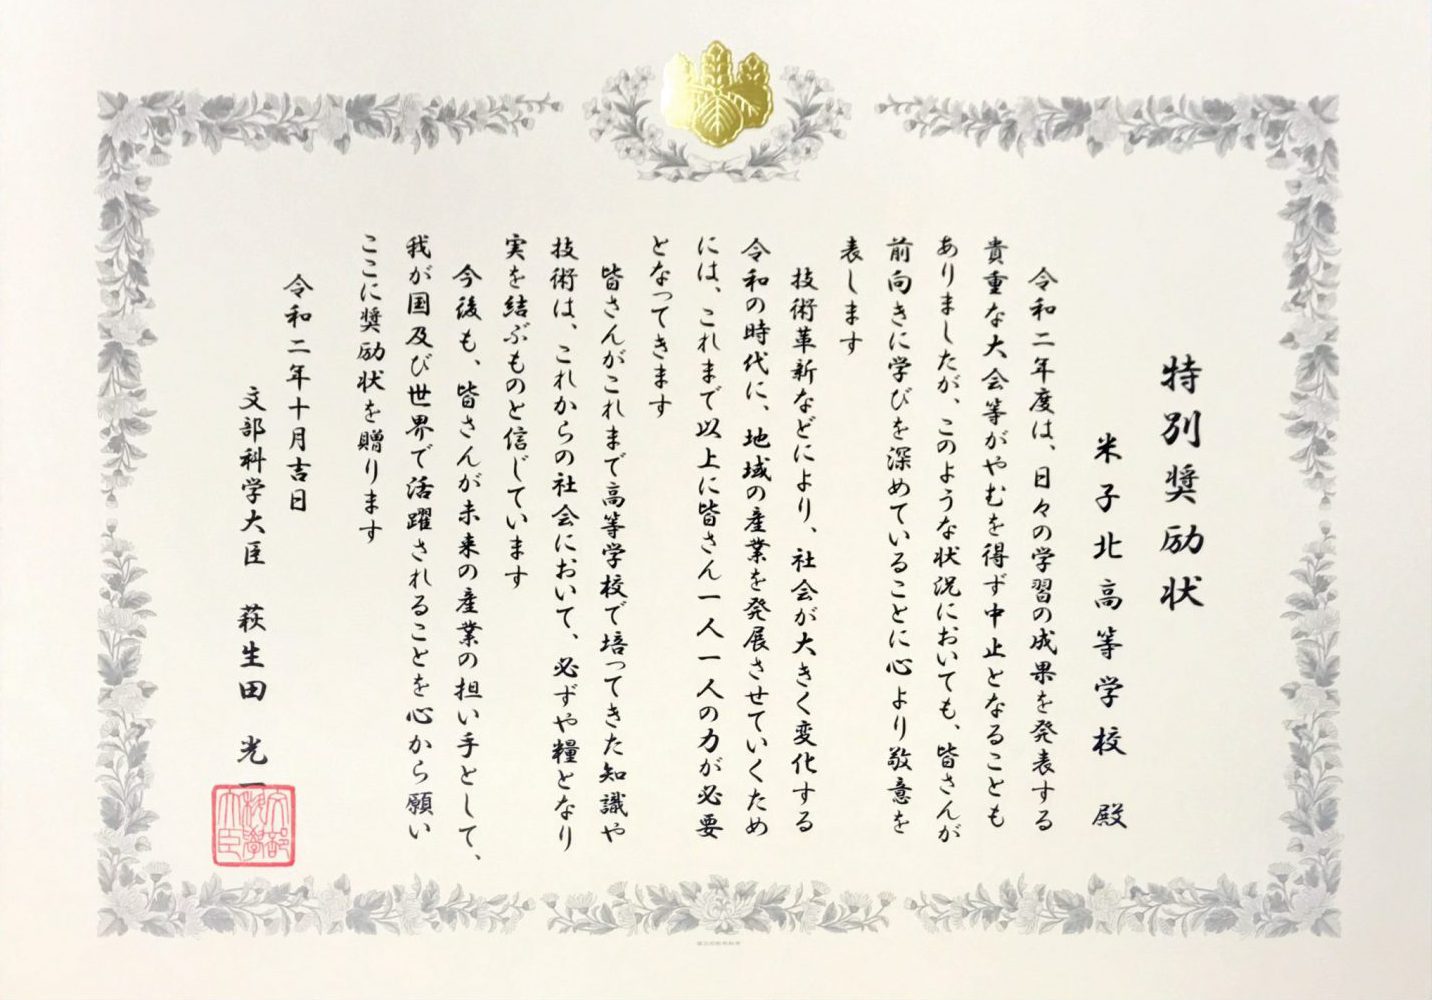 特別奨励状
米子北高等学校 殿
令和二年度は、日々の学習の成果を発表する
貴重な大会等がやむを得ず中止となることも
ありましたが、このような状況においても、皆さんが
前向きに学びを深めていることに心より敬意を
表します
技術革新などにより、社会が大きく変化する
令和の時代に、地域の産業を発展させていくため
には、これまで以上に皆さん一人一人の力が必要
となってきます
皆さんがこれまで高等学校で培ってきた知識や
技術は、これからの社会において、必ずや糧となり
実を結ぶものと信じています
今後も、皆さんが未来の産業の担い手として、
我が国及び世界で活躍されることを心から願い
ここに奨励状を贈ります
令和二年十月吉日
文部科学大臣 萩生田 光一
文部
科学
大臣